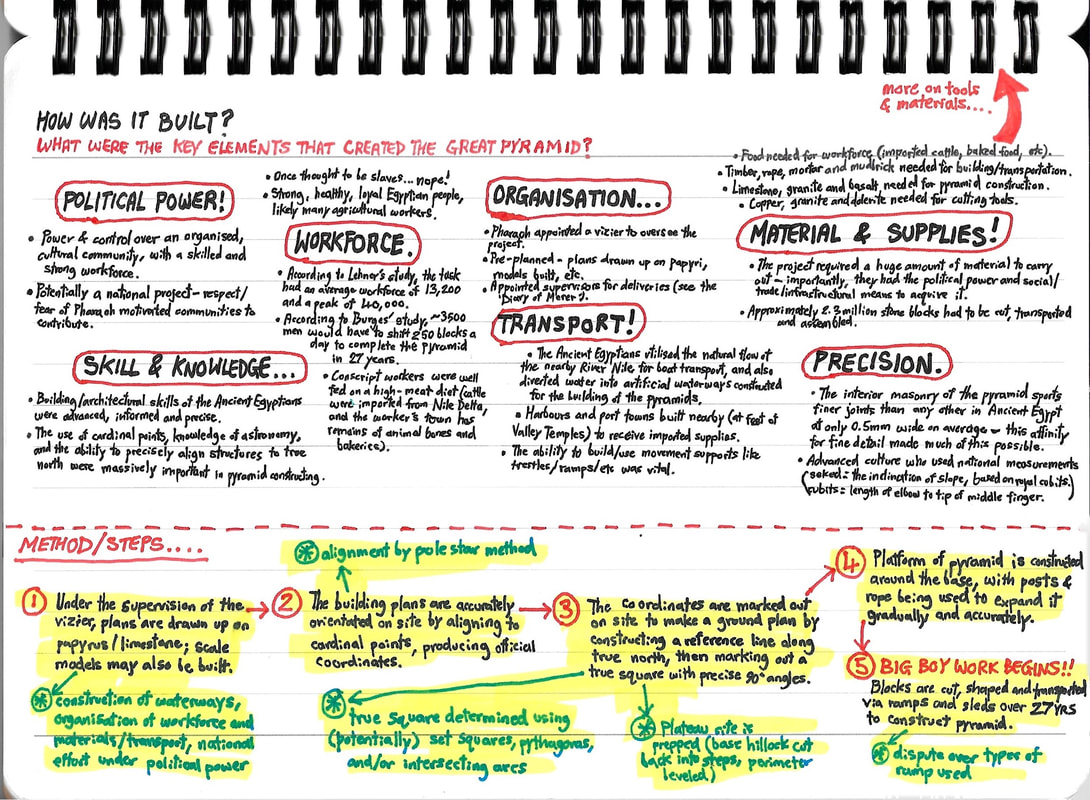 more on tools
& materials....
HOW WAS IT BUILT?
WHAT WERE THE KEY ELEMENTS THAT CREATED THE GREAT PYRAMID?
POLITICAL POWER!
• Power & control over an organised,
cultural community, with a skilled and
strong workforce.
• Potentially a national project - respect/
fear of Pharaoh motivated communities to
contribute.
• Once thought to be slaves... nope!
• Strong, healthy, loyal Egyptian people,
likely many agricultural workers.
WORKFORCE.
• According to Lehner's study, the task
had an average workforce of 13,200
and a peak of 40,000.
• According to Burges' study, ~3500
men would have to shift 250 blocks a
day to complete the pyramid
in 27 years.
• Conscript workers were well
fed on a high-meat diet (cattle
were imported from Nile Delta,
and the worker's town has
remains of animal bones and
bakeries).
ORGANISATION...
• Pharaoh appointed a vizier to oversee the
project.
• Pre-planned - plans drawn up on papyri,
models built, etc.
• Appointed supervisors for deliveries (see the
'Diary of Merer').
TRANSPORT!
• The Ancient Egyptians utilised the natural flow of
the nearby River Nile for boat transport, and also
diverted water into artificial waterways constructed
for the building of the pyramids.
• Harbours and port towns built nearby (at foot of
Valley Temples) to receive imported supplies.
• The ability to build/use movement supports like
trestles/ramps/etc was vital.
• Food needed for workforce (imported cattle, baked food, etc).
• Timber, rope, mortar and mudbrick needed for building/transportation.
• Limestone, granite and basalt needed for pyramid construction.
• Copper, granite and dolerite needed for cutting tools.
MATERIAL & SUPPLIES!
• The project required a huge amount of material to carry
out - importantly, they had the political power and social/
trade/infrastructural means to acquire it.
• Approximately 2.3 million stone blocks had to be cut, transported
and assembled.
SKILL & KNOWLEDGE...
• Building/architectural skills of the Ancient Egyptians
were advanced, informed and precise.
• The use of cardinal points, knowledge of astronomy,
and the ability to precisely align structures to true
north were massively important in pyramid constructing.
PRECISION.
• The interior masonry of the pyramid sports
finer joints than any other in Ancient Egypt
at only 0.5mm wide on average - this affinity
for fine detail made much of this possible.
• Advanced culture who used national measurements
(seked = the inclination of slope, based on royal cubits.)
cubits = length of elbow to tip of middle finger.
METHOD/STEPS....
* alignment by pole star method
1 Under the supervision of the
vizier, plans are drawn up on
papyrus/limestone; scale
models may also be built.
* construction of waterways,
organisation of workforce and
materials/transport, national
effort under political power
2 The building plans are accurately
orientated on site by aligning to
cardinal points, producing official
coordinates.
* true square determined using
(potentially) set squares, pythagoras,
and/or intersecting arcs
3 The coordinates are marked out
on site to make a ground plan by
constructing a reference line along
true north, then marking out a
true square with precise 90° angles.
* Plateau site is
prepped (base hillock cut
back into steps, perimeter
leveled)
4 Platform of pyramid is constructed
around the base, with posts &
rope being used to expand it
gradually and accurately.
5 BIG BOY WORK BEGINS!!
Blocks are cut, shaped and transported
via ramps and sleds over 27 YRS
to construct pyramid.
* dispute over types of
ramp used